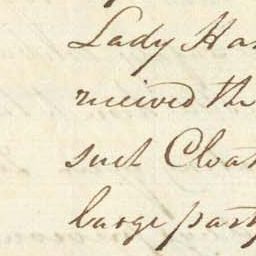 Lady Har
received the
such Cloat
large party